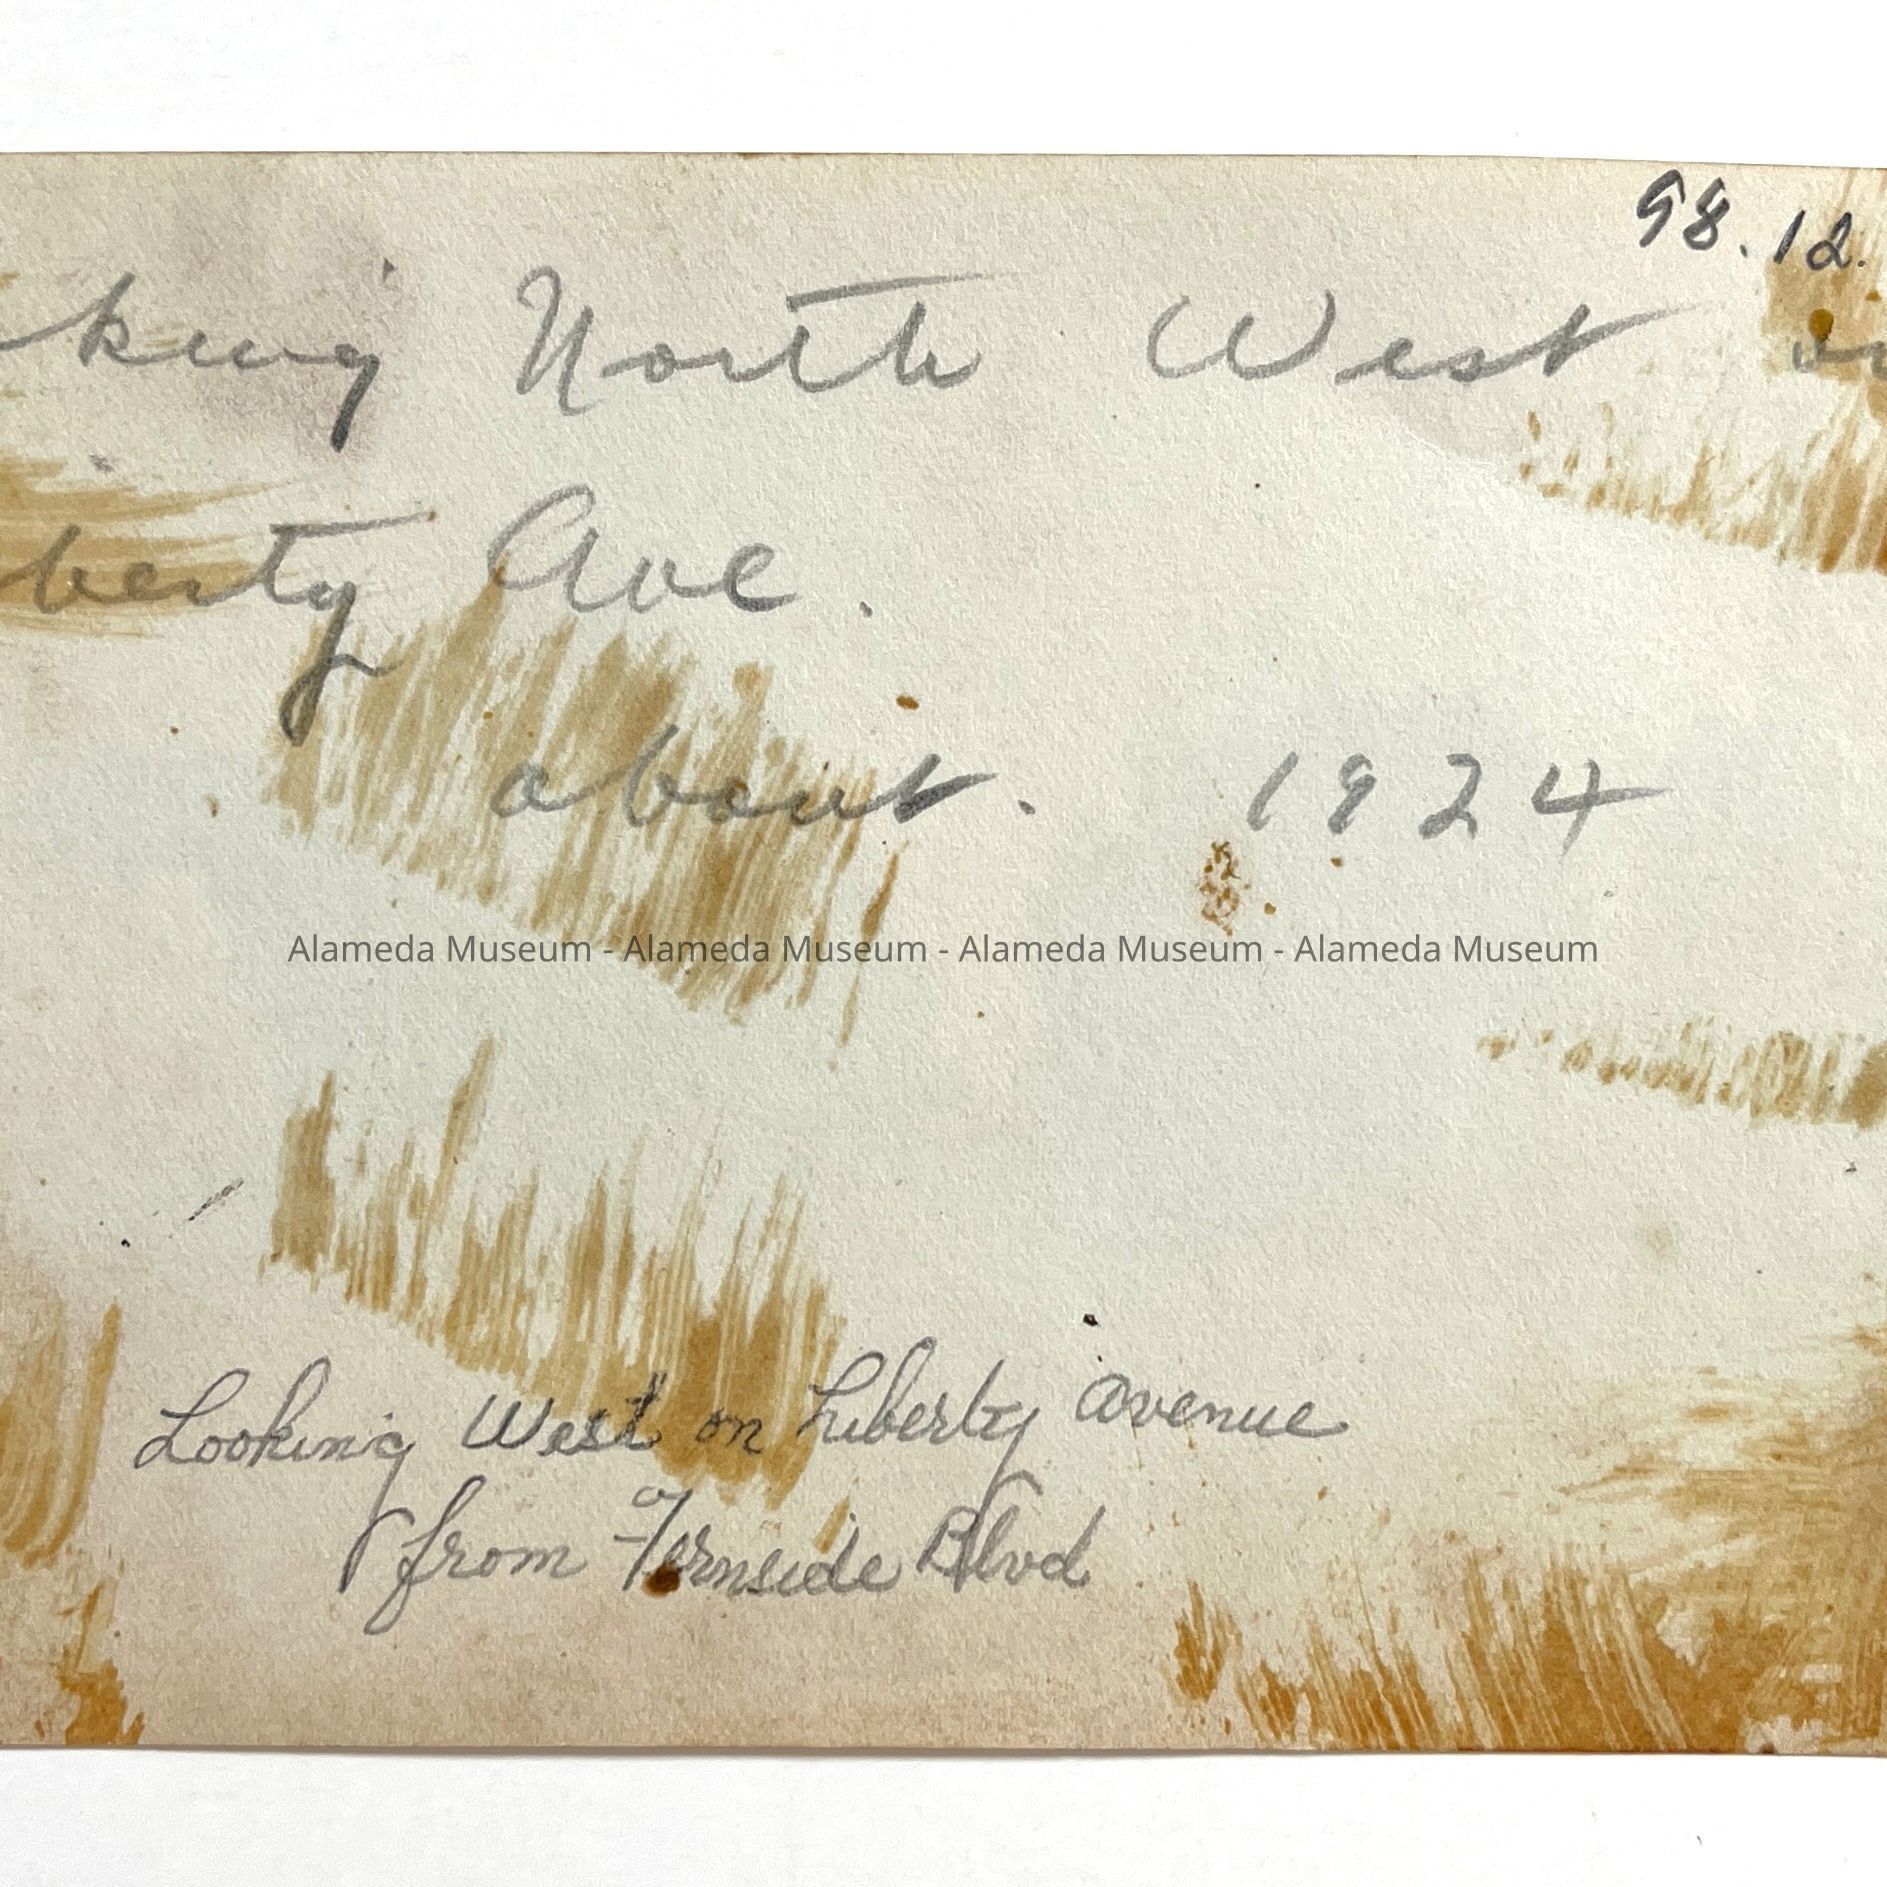 98.12.
king North West on
berty Ave.
about. 1924
Alameda Museum - Alameda Museum - Alameda Museum - Alameda Museum
Looking West on Liberty avenue
from Fernside Blvd